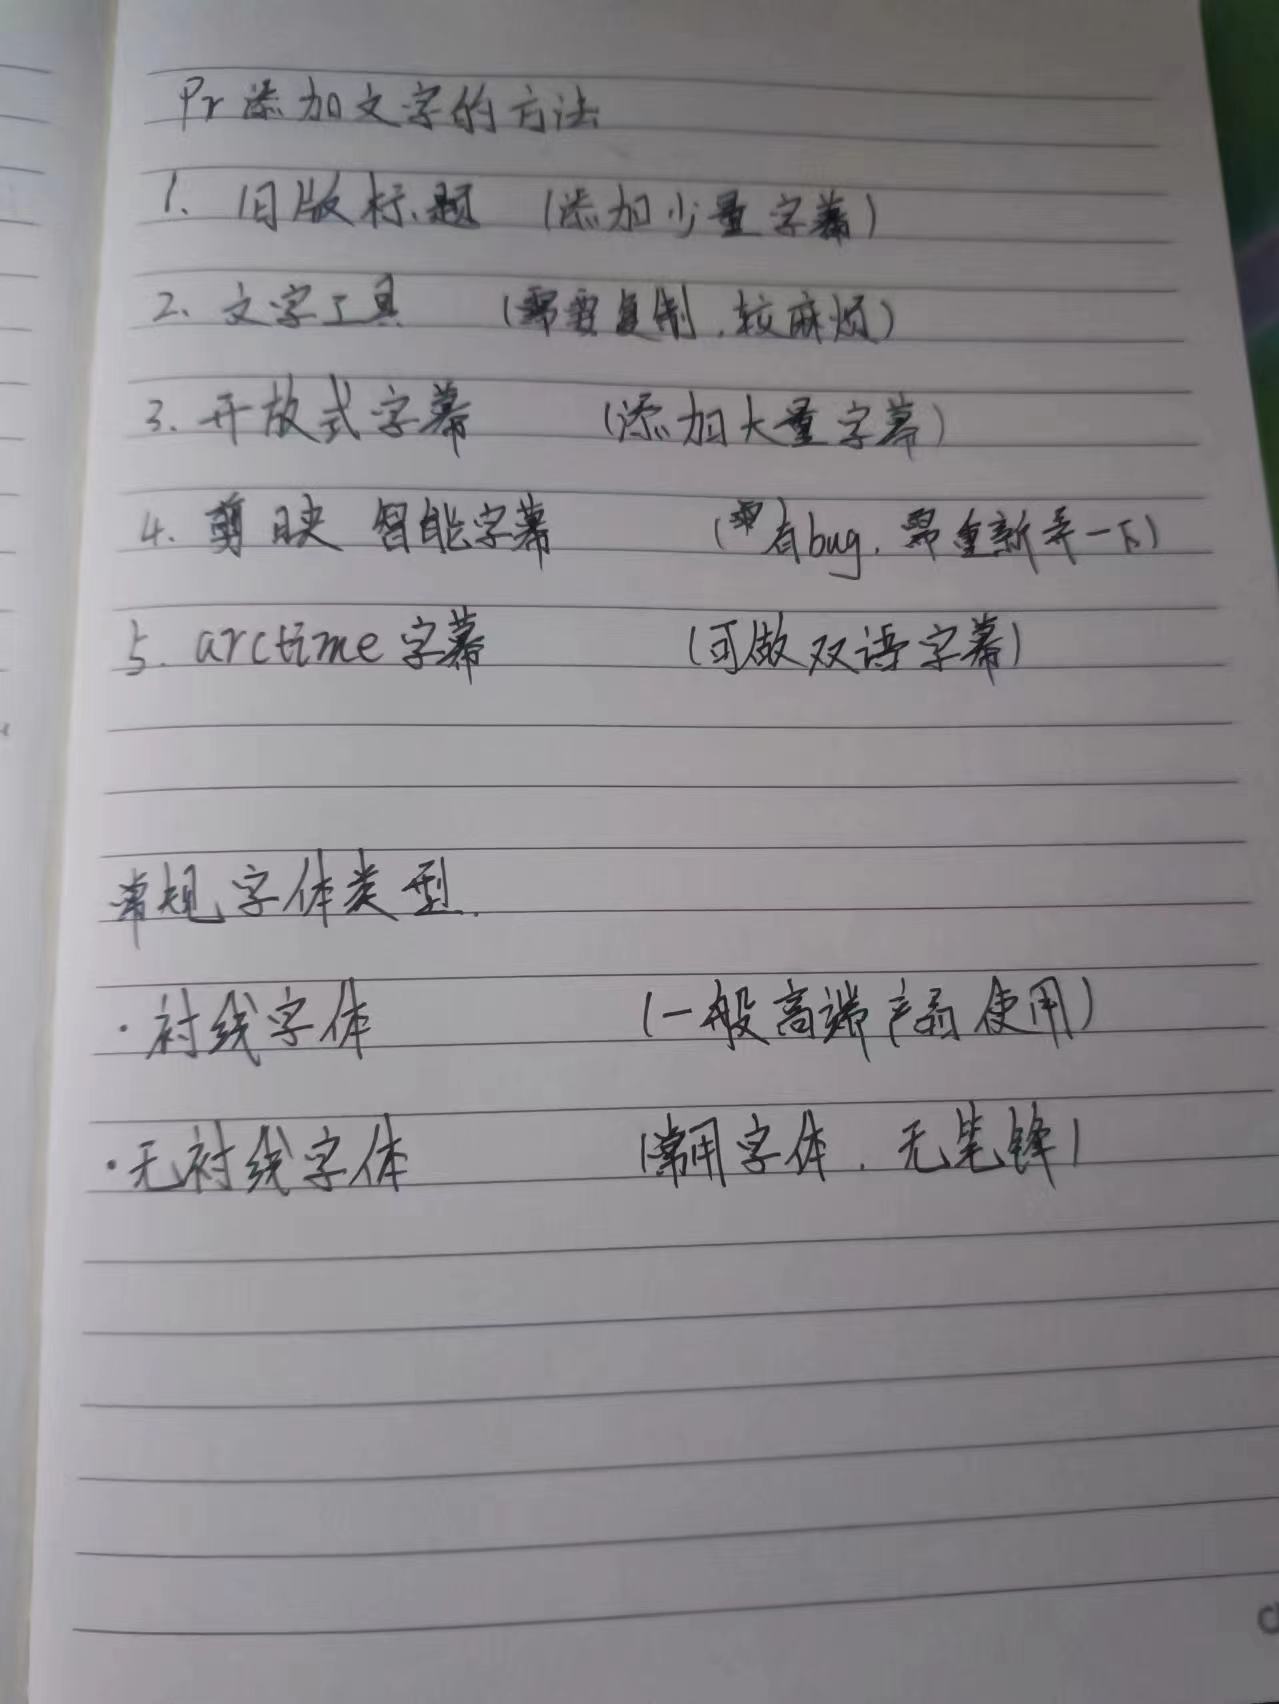 Pr添加文字的方法
1. 旧版标题 (添加少量字幕)
2. 文字工具 (需要复制,较麻烦)
3. 开放式字幕 (添加大量字幕)
4. 剪映 智能字幕 (有bug,需重新弄一下)
5. arctime字幕 (可做双语字幕)
常规字体类型.
·衬线字体 (一般高端产品使用)
·无衬线字体 (常用字体,无笔锋)